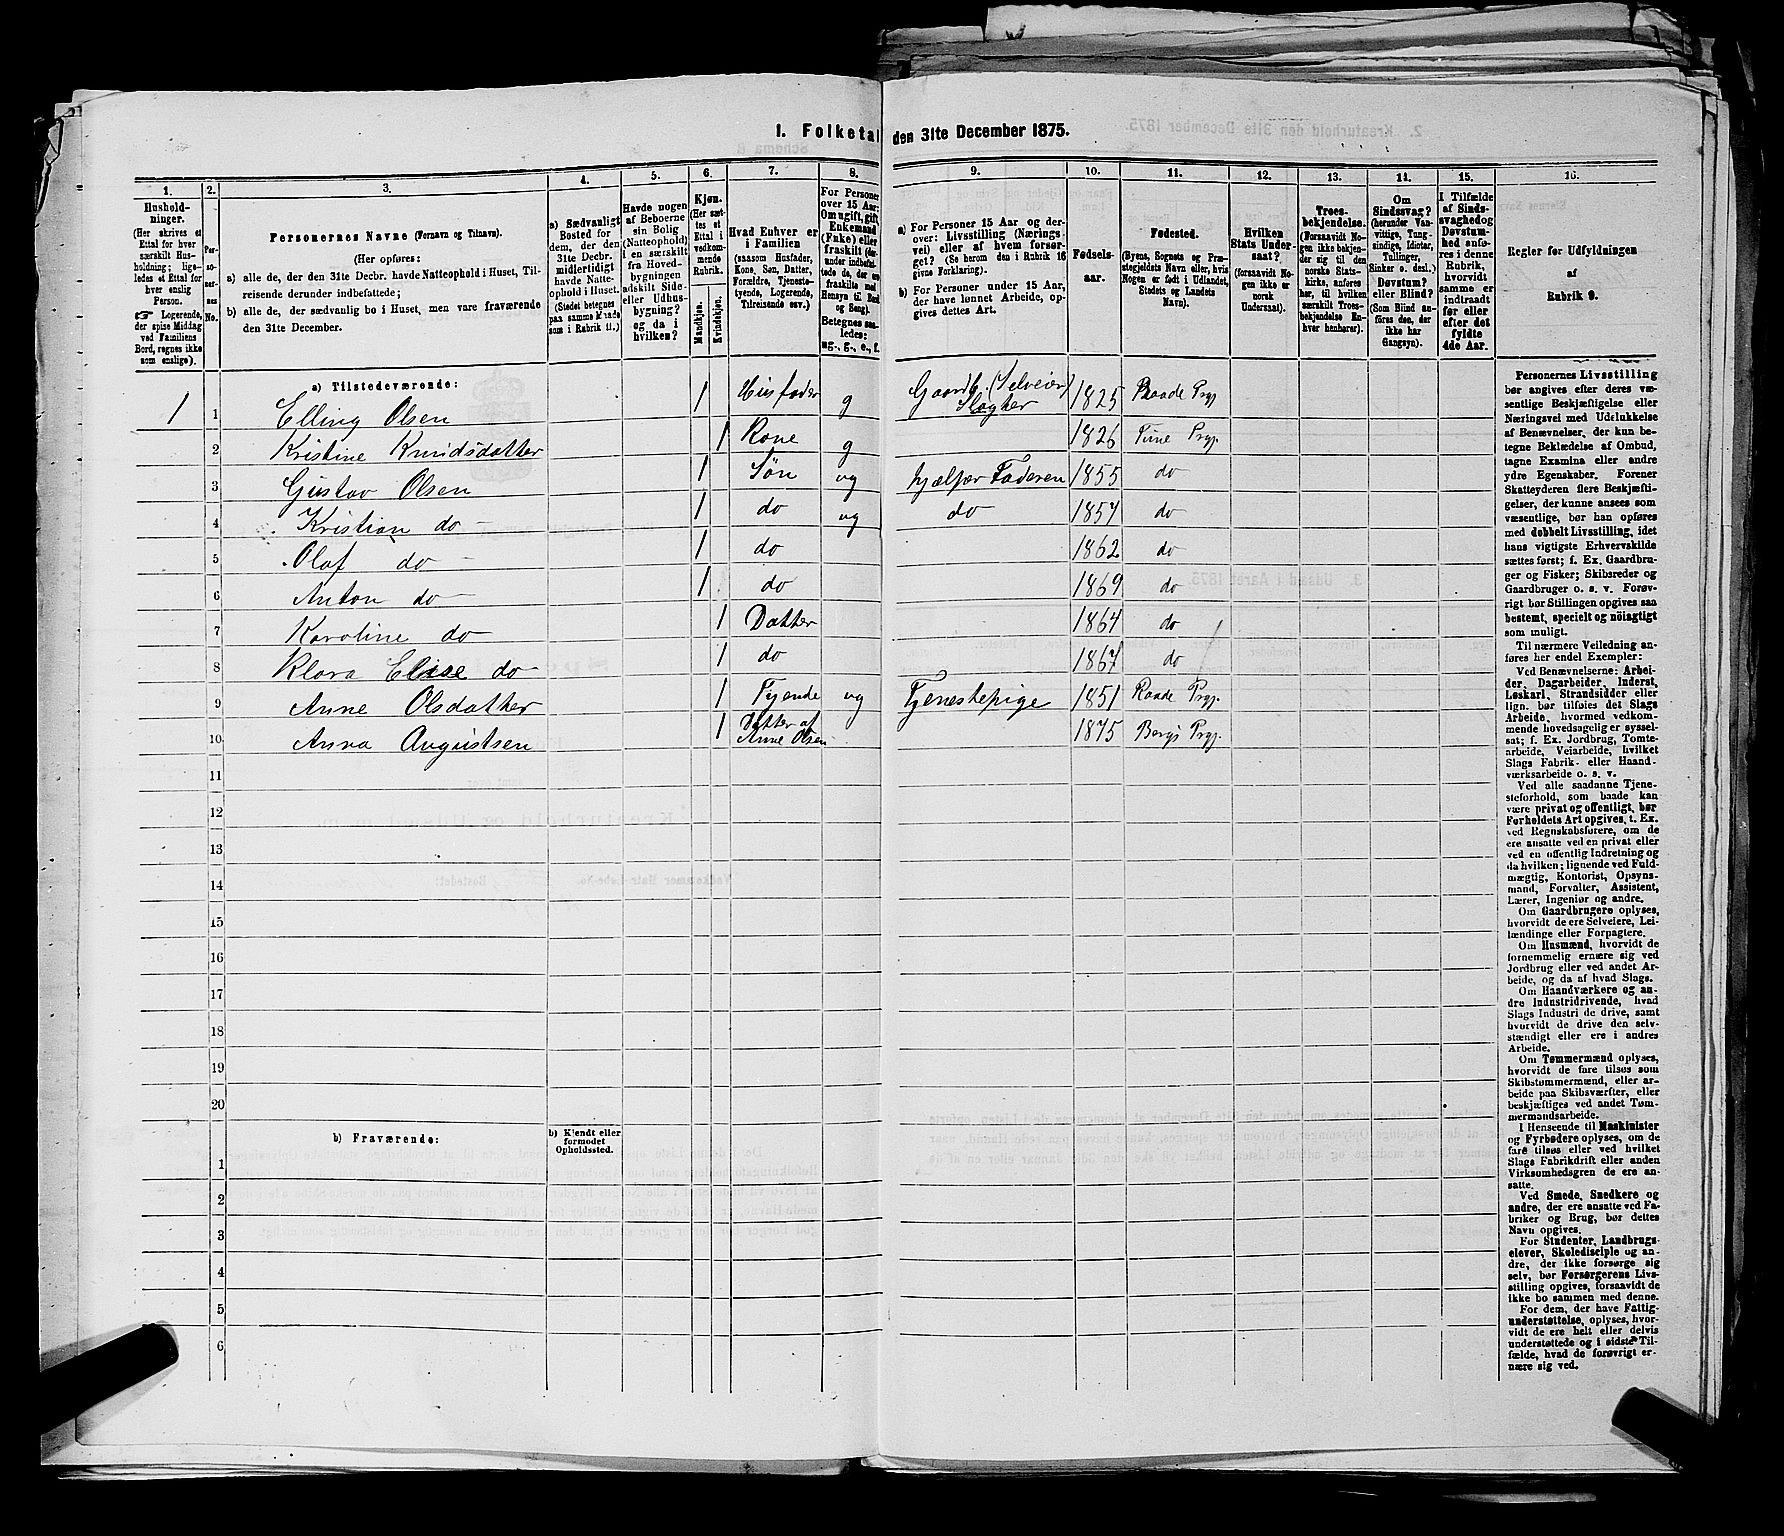 1. Folketal den 31te December 1875.
1. 2. 3. 4. 5. 6. 7. 8. 9. 10. 11. 12. 13. 14. 15. 16.
Hushold-
ninger.
(Her skrives et
Ettal for hver
særskilt Hus-
holdning; lige-
ledes et Ettal
for hver enslig
Person.
☞ Logerende,
der spise Middag
ved Familiens
Bord, regnes ikke
som enslige).
Per-
so-
ner-
nes
No.
Personernes Navne (Fornavn og Tilnavn).
(Her opføres:
a) alle de, der den 31te Decbr. havde Natteophold i Huset, Til-
reisende derunder indbefattede;
b) alle de, der sædvanlig bo i Huset, men vare fraværende
den 31te December.
a) Sædvanligt
Bosted for
dem, der den
31te Decbr.
midlertidigt
havde Natte-
ophold i Huset.
(Stedet betegnes
paa samme Maade
som i Rubrik 11.)
Havde nogen
af Beboerne
sin Bolig
(Natteophold)
i en særskilt
fra Hoved-
bygningen
adskilt Side-
eller Udhus-
bygning?
og da i
hvilken?
Kjøn.
(Her sæt-
tes et
Ettal i
vedkom-
mende
Rubrik.
Mandkjøn.
Kvindekjøn.
Hvad Enhver er
i Familien
(saasom Husfader,
Kone, Søn, Datter,
Forældre, Tjeneste-
tyende, Logerende,
Tilreisende osv.)
For Personer
over 15 Aar:
Om ugift, gift,
Enkemand
(Enke) eller
fraskilt (der-
under indbefat-
tede de, der ere
fraskilte med
Hensyn til Bord
og Seng).
Betegnes saa-
ledes:
ug., g., e., f.
a) For Personer 15 Aar og der-
over: Livsstilling (Nærings-
vei) eller af hvem forsør-
get? (Se herom den i Rubrik 16
givne Forklaring).
b) For Personer under 15 Aar,
der have lønnet Arbeide, op-
gives dettes Art.
Fødsels-
aar.
Fødested.
(Byens, Sognets og Præ-
stegjeldets Navn eller, hvis
Nogen er født i Udlandet,
Stedets og Landets
Navn).
Hvilken
Stats Under-
saat?
(forsaavidt No-
gen ikke er
norsk
Undersaat).
Troes-
bekjendelse.
(Forsaavidt No-
gen ikke beken-
der sig til den
norske Stats-
kirke, anføres
her, til hvilken
særskilt Troes-
bekjendelse En-
hver henhører).
Om
Sindssvag?
(herunder Van-
vittige, Tung-
sindige, Idioter,
Tullinger,
Sinker o. desl.)
Døvstum?
eller Blind?
(Som Blind an-
føres den, der
ikke har
Gangsyn).
I Tilfælde
af Sinds-
svaghedog
Døvstum-
hed anfø-
res i denne
Rubrik,
hvorvidt
samme er
indtraadt
før eller
efter det
fyldte
4de Aar.
Regler for Udfyldningen
af
Rubrik 9.
a) Tilstedeværende:
1 1 Elling Olsen 1 Husfader g Gaardb. (Selveier) Slagter 1825 Raade Prgj
2 Kristine Knudsdatter 1 Kone g 1826 Tune Prgj.
3 Gustav Olsen 1 Søn ug hjælper Faderen 1855 do
4 Kristian do 1 do ug do 1857 do
5 Olaf do 1 do 1862 do
6 Anton do 1 do 1869 do
7 Karoline do 1 Datter 1864 do
8 Klara Elise do 1 do 1867 do
9 Anne Olsdatter 1 Tyende ug Tjenestepige 1851 Raade Prgj.
10 Anna Augustsen 1 Datter af Anne Olsen 1875 Bergs Prgj.
11
12
13
14
15
16
17
18
19
20
b) Fraværende:
b) Kjendt eller
formodet
Opholdssted.
1
2
3
4
5
6
Personernes Livsstilling
bør angives efter deres væ-
sentlige Beskjæftigelse eller
Næringsvei med Udelukkelse
af Benævnelser, der kun be-
tegne Beklædelse af Ombud,
tagne Examina eller andre
ydre Egenskaber. Forener
Skatteyderen flere Beskjæfti-
gelser, der kunne ansees som
væsentlige, bør han opføres
med dobbelt Livsstilling, idet
hans vigtigste Erhvervskilde
sættes først; f. Ex. Gaardbru-
ger og Fisker; Skibsreder og
Gaardbruger o. s. v. Forøv-
rigt bør Stillingen opgives saa
bestemt, specielt og nöiagtigt
som muligt.
Til nærmere Veiledning an-
føres her endel Exempler:
Ved Benævnelserne: Arbei-
der, Dagarbeider, Inderst,
Løskarl, Strandsidder eller
lign. bør tilføies det Slags
Arbeide, hvormed vedkom-
mende hovedsagelig er syssel-
sat; f. Ex. Jordbrug, Tomte-
arbeide, Veiarbeide, hvilket
Slags Fabrik- eller Haand-
værksarbeide o. s. v.
Ved alle saadanne Tjene-
steforhold, som baade kan
være privat og offentligt, bør
Forholdets Art opgives, t. Ex.
ved Regnskabsførere, om de
ere ansatte ved en privat eller
ved en offentlig Indretning og
da hvilken; lignende ved Fuld-
mægtig, Kontorist, Opsyns-
mand, Forvalter, Assistent,
Lærer, Ingeniør og andre.
Om Gaardbrugere oplyses,
hvorvidt de ere Selveiere, Lei-
lændinge eller Forpagtere.
Om Husmænd, hvorvidt de
fornemmelig ernære sig ved
Jordbrug eller ved andet Ar-
beide, og da af hvad Slags.
Om Haandværkere og an-
dre Industridrivende, hvad
Slags Industri de drive, samt
hvorvidt de drive den selv-
stændigt eller ere i andres
Arbeide.
Om Tømmermænd oplyses,
hvorvidt de fare tilsøs som
Skibstømmermænd, eller ar-
beide paa Skibsværfter, eller
beskjæftiges ved andet Tøm-
mermandsarbeide.
I Henseende til Maskinister
og Fyrbødere oplyses, om de
fare tilsøs eller ved hvilket
Slags Fabrikdrift eller anden
Virksomhedsgren de ere an-
satte.
Ved Smede, Snedkere og
andre, der ere ansatte ved Fa-
briker og Brug, bør dettes
Navn opgives.
For Studenter, Landbrugs-
elever, Skoledisciple og an-
dre, der ikke forsørge sig
selv, bør Forsørgerens Livs-
stilling opgives, forsaavidt de
ikke bo sammen med denne.
For dem, der have Fattig-
understøttelse, oplyses, hvor-
vidt de ere helt eller delvis
understøttede og i sidste Til-
fælde, hvad de forøvrigt er-
nære sig ved.